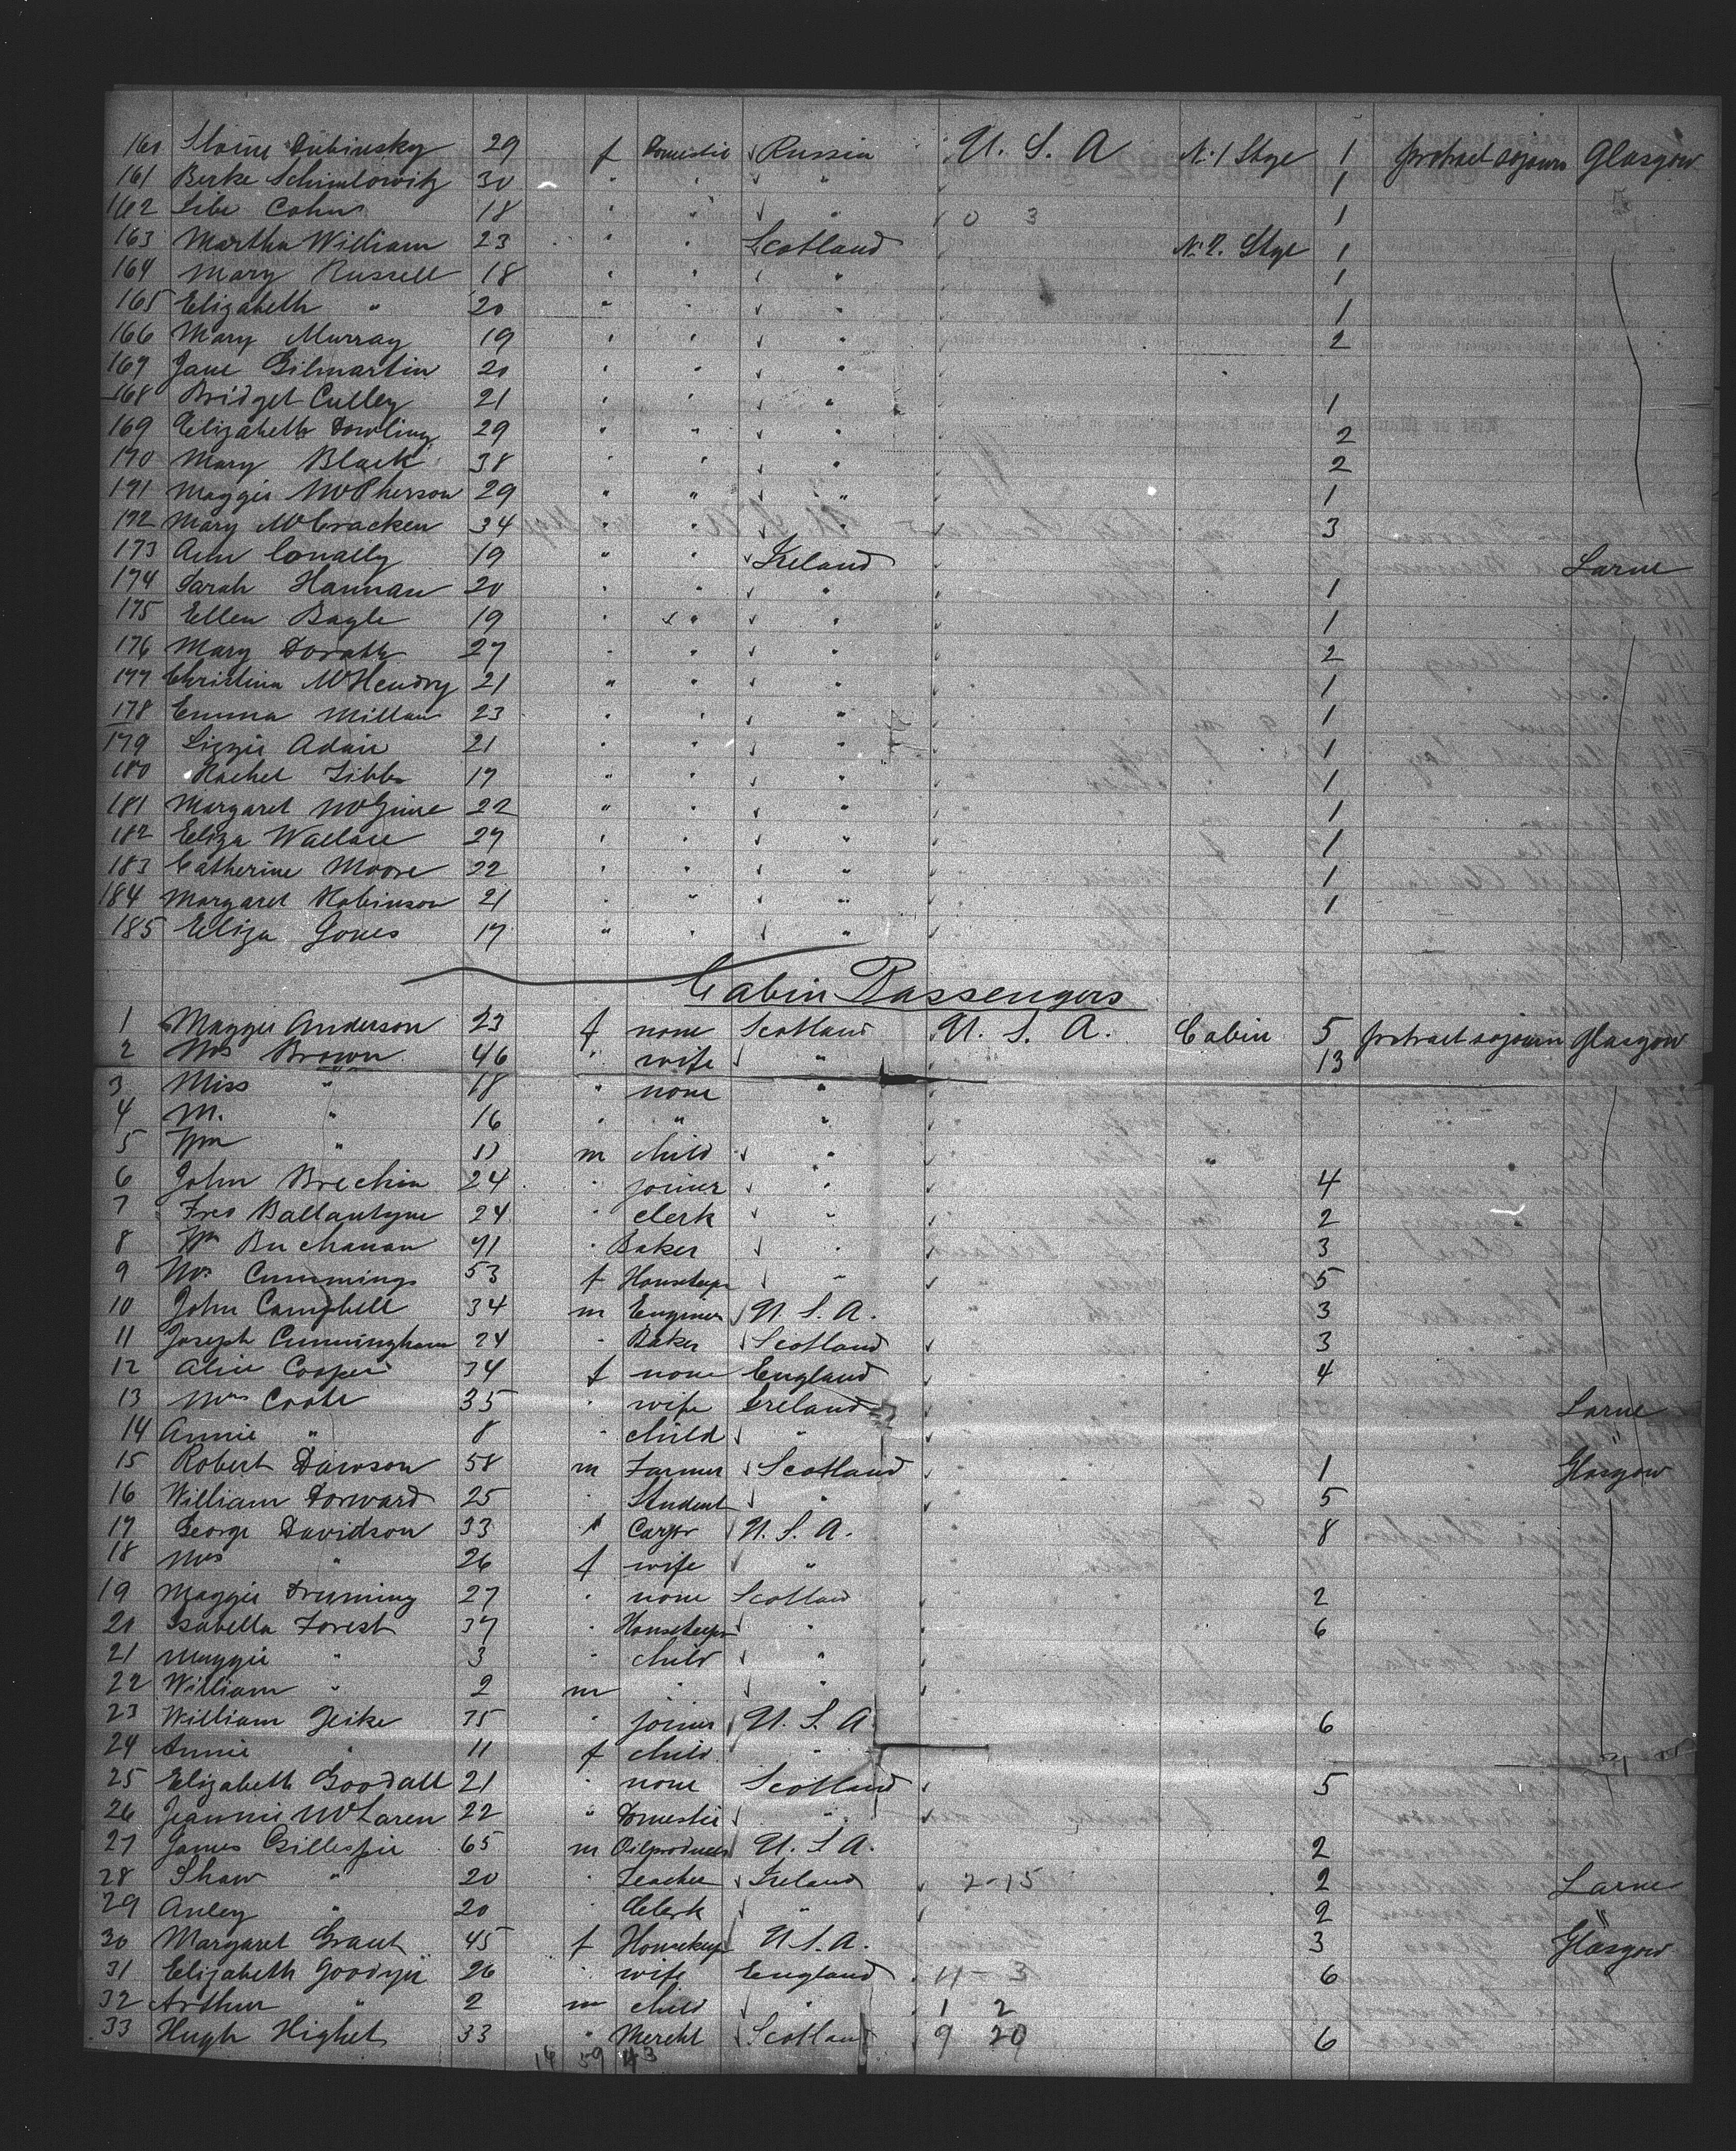 160 Slome Dubinsky 29 f Domestic Russia U. S. A No 1 Stge 1 protract sojourn Glasgow
161 Berke Schimlowitz 30 " " " 1
162 Libe Cohn 18 " " " 0 3 1
163 Martha William 23 " " Scotland No 2. Stge 1
164 Mary Russell 18 " " " 1
165 Elizabeth " 20 " " " 1
166 Mary Murray 19 " " " 2
167 Jane Gilmartin 20 " " "
168 Bridget Culley 21 " " " 1
169 Elizabeth Dowling 29 " " " 2
170 Mary Black 38 " " " 2
171 Maggie McPherson 29 " " " 1
172 Mary McCracken 34 " " " 3
173 Ann Conally 19 " " Ireland Larne
174 Sarah Hannan 20 " " " 1
175 Ellen Bagle 19 " " " 1
176 Mary Dorath 27 " " " 2
177 Christina McHendry 21 " " " 1
178 Emma Millan 23 " " " 1
179 Lizzie Adair 21 " " " 1
180 Rachel Tibbs 17 " " " 1
181 Margaret McGune 22 " " " 1
182 Eliza Wallace 27 " " " 1
183 Catherine Moore 22 " " " 1
184 Margaret Robinson 21 " " " 1
185 Eliza Jones 17 " " "
Cabin Passengers
1 Maggie Anderson 23 f none Scotland U. S. A. Cabin 5 protract sojourn Glasgow
2 Mrs Brown 46 " wife " 13
3 Miss " 18 " none "
4 M. " 16 " " "
5 Wm " 11 m child "
6 John Brechin 24 " joiner " 4
7 Fred Ballantyne 24 " clerk " 2
8 Wm Buchanan 41 " Baker " 3
9 Mrs Cummings 53 f Housekeepr " 5
10 John Campbell 34 m Engineer U. S. A. 3
11 Joseph Cunningham 24 " Baker Scotland 3
12 Alice Cooper 34 f none England 4
13 Mrs Cooke 35 " wife Ireland Larne
14 Annie " 8 " child " "
15 Robert Dawson 58 m Farmer Scotland 1 Glasgow
16 William Dorward 25 " Student " 5
17 George Davidson 33 " Carptr U. S. A. 8
18 Mrs " 26 f wife "
19 Maggie Druming 27 " none Scotland 2
20 Isabella Forest 37 " Housekeepr " 6
21 Maggie " 3 " child "
22 William " 2 m " "
23 William Geike 35 " joiner U. S. A 6
24 Annie " 11 f child "
25 Elizabeth Goodall 21 " none Scotland 5
26 Jeannie McLaren 22 " Domestic "
27 James Gillespie 65 m Oilproducer U. S A. 2
28 Shaw " 20 " Teacher Ireland 2-15 2 Larne
29 Anley " 20 " Clerk " 2 "
30 Margaret Grant 45 f Housekeep U. S. A. 3 Glasgow
31 Elizabeth Goodyir 26 " wife England 11-3 6
32 Arthur " 2 m child " 1 2
33 Hugh Highet 33 " Mercht Scotland 9 20 6
14 59 43